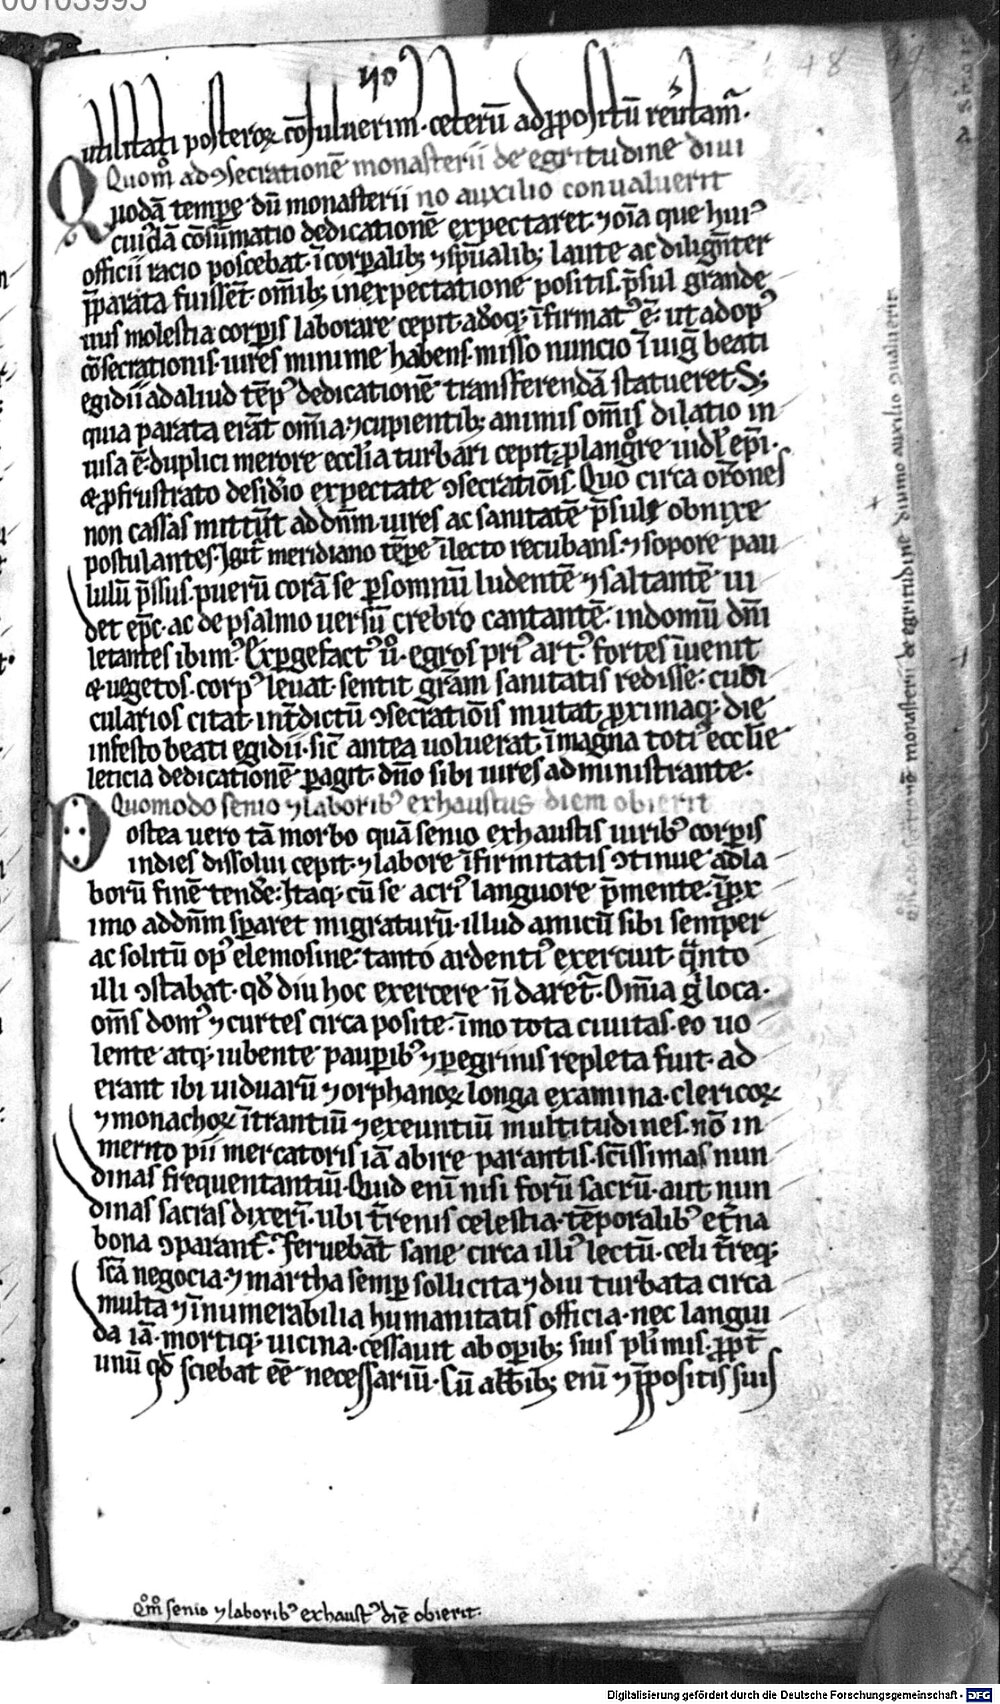 utilitati posteroꝝ ↄ̄suluerim. ceterū ad ꝓpositū reūtam̄.
Quom̊ ad ↄsecrationē monasterii de egritudine diui
no auxilio conualuerit
Quodā tempe dū monasterii
cuidā cōsūmatio dedicationē expectaret. ⁊ oīa que hui᷒
officii racio poscebat. ī corꝑalib; ⁊ sp̄ualib; laute ac diligēter
p̄parata fuissēt. om̄ib; in expectatione positis. p̄sul grande
uus molestia corꝑis laborare cepit. adoq; īfirmat᷒ ē. ut ad op᷒
cōsecrationis. uires minime habens. misso nuncio ī uiḡ beati
egidii ad aliud tēp᷒ dedicationē transferendā statueret. S;
quia parata erāt om̄ia. ⁊ cupientib; animis om̄is dilatio in
uisa ē. duplici merore eccl̄ia turbari cepit.
ꝓ frustrato desid̓io expectate ↄsecratiōis. Quo circa or̄ones
non cassas mittūt ad dn̄m. uires ac sanitatē p̄suli obnixe
postulantes. Igit̄ meridiano tēpe ī lecto recubans. ⁊ sopore pau
lulū p̄ssus. puerū corā se ꝑ somnū ludentē ⁊ saltantē ui
det ep̄c. ac de psalmo uersū crebro cantantē. in domū dn̄i
letantes ibim᷒. Exꝑgefact᷒ ū. egros pri᷒ art᷒. fortes īuenit
⁊ uegetos. corp᷒ leuat. sentit gr̄am sanitatis redisse. cubi
cularios citat. int̄dictū ↄsecratiōis mutat. ꝓximaq; die
in festo beati egidii. sic̄ antea uoluerat. ī magna toti᷒ eccl̄ie
leticia dedicationē ꝑagit. dn̄o sibi uires administrante.
Quomodo senio ⁊ laborib᷒ exhaustus diem obierit
Postea uero tā morbo quā senio exhaustis uirib᷒ corꝑis
in dies dissolui cepit. ⁊ labore īfirmitatis ↄtinue ad la
borū finē tend̓e. Itaq; cū se acri᷒ languore p̄mente. ī ꝓx
imo ad dn̄m sꝑaret migraturū. illud amicū sibi semper
ac solitū op᷒ elemosine. tanto ardenti᷒ exercuit. q̄nto
illi ↄstabat. qd̓ diu hoc exercere n̄ daret̄. Om̄ia g̊ loca.
om̄s dom᷒ ⁊ curtes circa posite. īmo tota ciuitas. eo uo
lente atq; iubente pauꝑib᷒ ⁊ ꝑegrinis repleta fuit. ad
erant ibi uiduarū ⁊ orphanoꝝ longa examina. clericoꝝ
⁊ monachoꝝ ītrantiū ⁊ exeuntiū multitudines. nō in
merito pii mercatoris iā abire parantis. sc̄issimas nun
dinas frequentantiū. Quid enī nisi forū sacrū. aut nun
dinas sacras dixeri. ubi t̄renis celestia. tēporalib᷒ et̄na
bona ↄparant̄. Feruebāt sane circa illi᷒ lectū. celi t̄req;
sc̄a negocia. ⁊ martha semꝑ sollicita ⁊ diu turbata circa
multa ⁊ īnumerabilia humanitatis officia. nec langui
da iā. mortiq; uicina. cessauit ab oꝑib; suis pl̄imis. ꝓpt̄
unū qd̓ sciebat eē necessariū. Cū abb̄ib; enī ⁊ p̄positis suis
Qm̊ senio ⁊ laborib᷒ exhaust᷒ diē obierit.
Qm̊ ad ↄsecrationē monasterii de egritudine diuino auxilio ↄualuerit
Digitalisierung gefördert durch die Deutsche Forschungsgemeinschaft - DFG